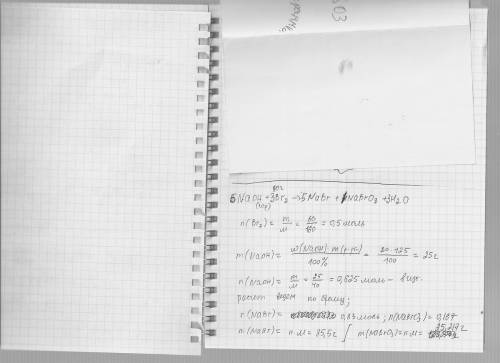 ОЗ
6NaOH + 3Br₂ → 5NaBr + NaBrO₃ + 3H₂O
n(Br₂) = m/M = 80/160 = 0,5 моль
m(NaOH) = ω(NaOH) · m(р-ра)/100% = 20 · 125/100 = 25г
n(NaOH) = m/M = 25/40 = 0,625 моль –
расчет ведем по брому;
n(NaBr) = 0,83 моль; n(NaBrO₃) = 0,167
m(NaBr) = n·M = 85,5 г m(NaBrO₃) = n·M = 25,217 г